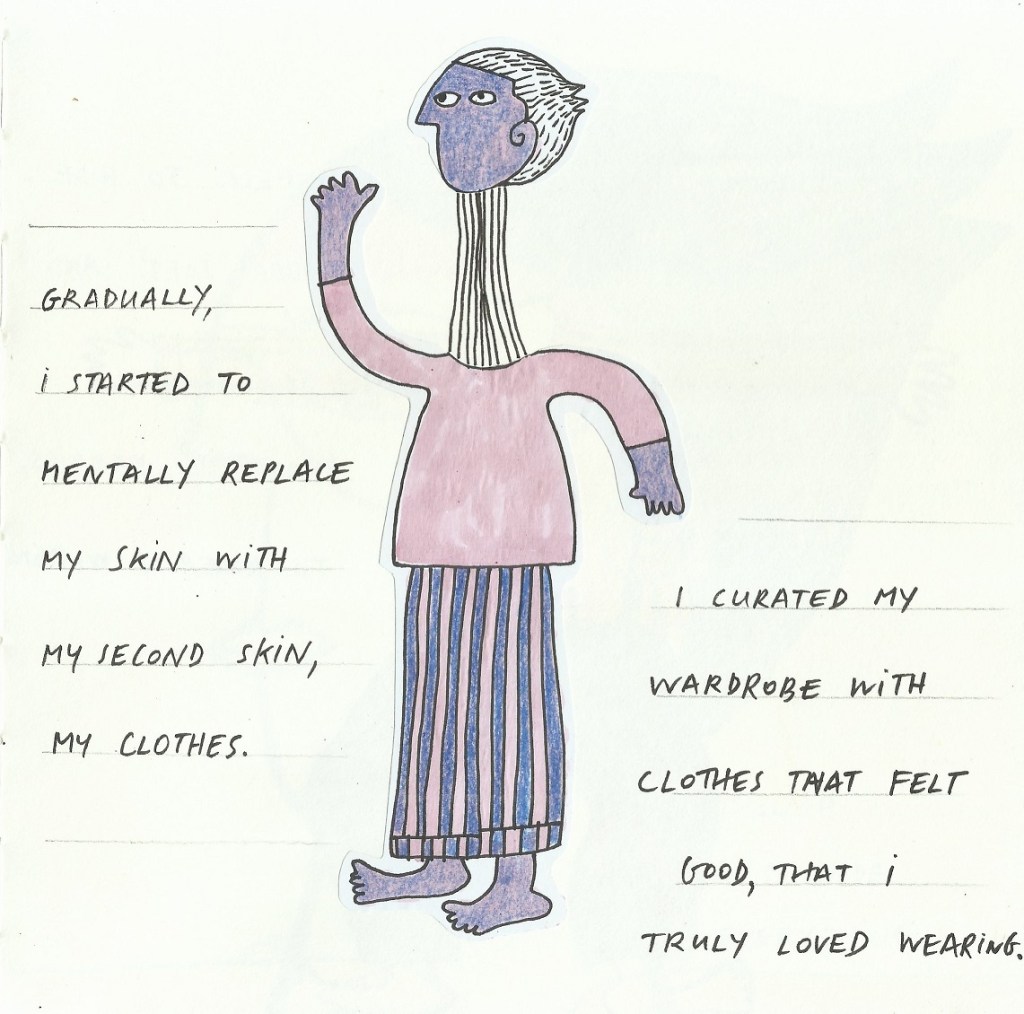 GRADUALLY,
i STARTED TO
MENTALLY REPLACE
MY SKiN WiTH
MY SECOND SKiN,
MY CLOTHES.
I CURATED MY
WARDROBE WiTH
CLOTHES THAT FELT
GOOD, THAT i
TRULY LOVED WEARiNG.